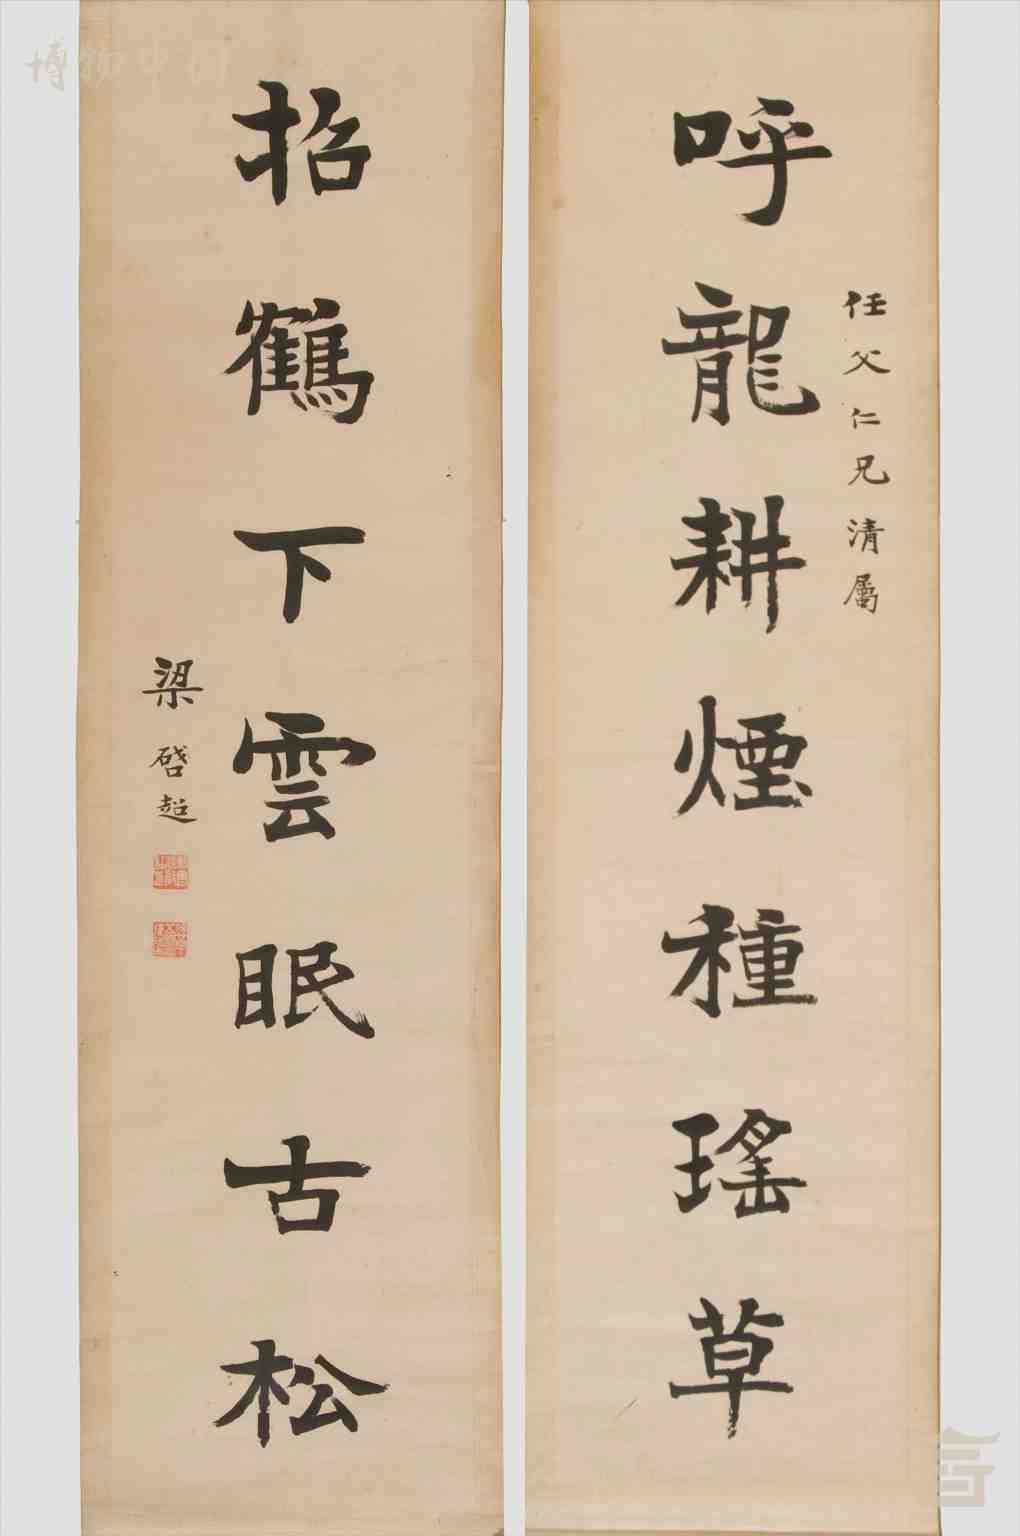 呼龍耕煙種瑤草
任父仁兄清屬
招鶴下雲眠古松
梁啓超
博物中国